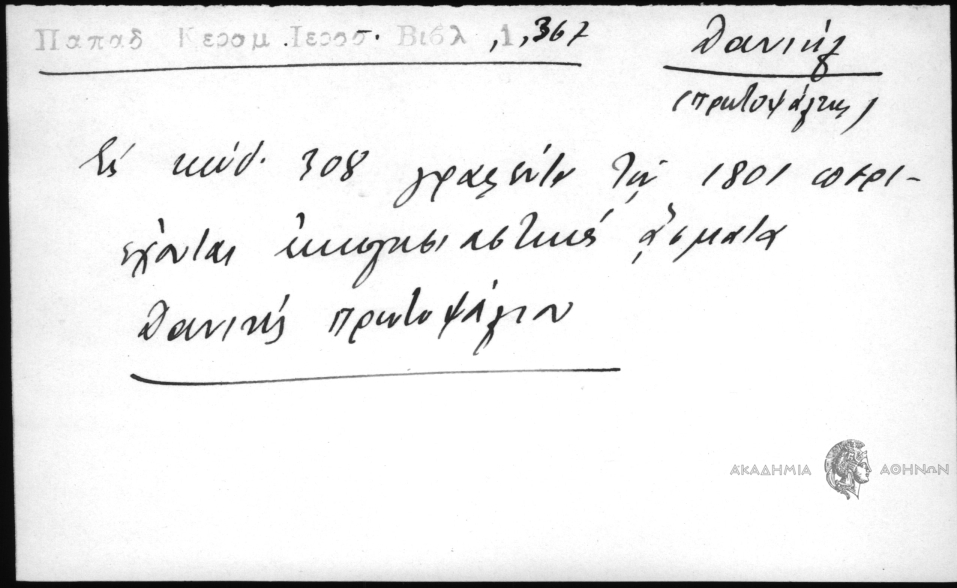 Παπαδ Κεραμ Ιεροσ. Βιβλ ,1,367
Δανιήλ
(πρωτοψάλτης)
Εἰς κώδ. 308 γραφέντα τῷ 1801 περι-
έχονται ἐκκλησιαστικά ᾄσματα
Δανιήλ πρωτοψάλτου
ΑΚΑΔΗΜΙΑ ΑΘΗΝΩΝ